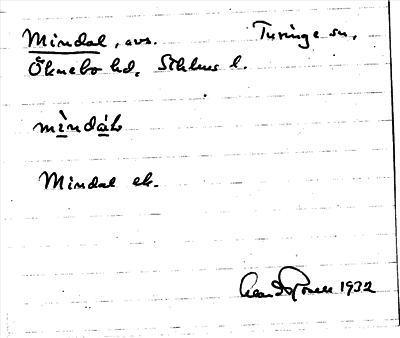 Mindal, avs. Turinge sn,
Öknebo hd, Sthlms l.
mìndá̀l
Mindal ek.
1932